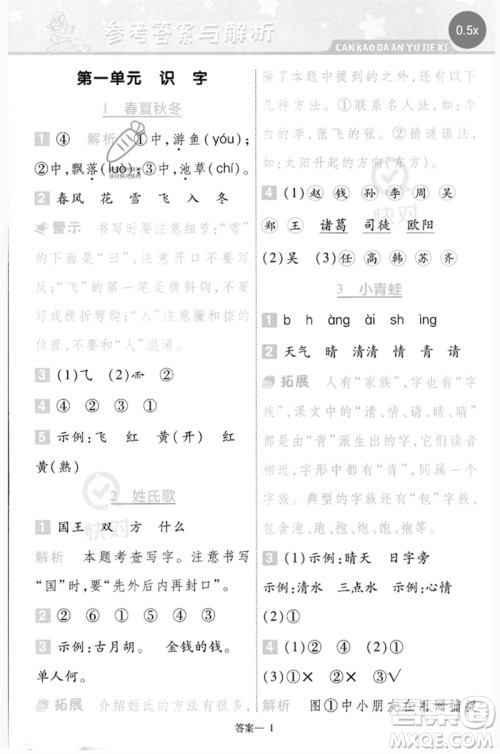 参考答案与解析
CAN KAO DA AN YU JIE XI
0.5x
第一单元 识 字
1 春夏秋冬
1 ④ 解析 ①中,游鱼(yóu);
②中,飘落(luò);③中,池草(chí)。
2 春风 花 雪 飞 入 冬
警示 书写时要注意:“雪”的
下面是“彐”,注意开口的方
向;“飞”的第一笔是横斜钩,不要
写成横折钩;“入”注意撇和捺的
位置,不要和“人”混淆。
3 (1)⺄ (2)⻗ ②
4 ④ ② ③ ①
5 示例:飞 红 黄(开) 红
黄(熟)
2 姓氏歌
1 国王 双 方 什么
解析 本题考查写字。注意书
写“国”时,要“先外后内再封口”。
2 ② ⑥ ① ⑤ ③ ④
3 示例:古月胡。 金钱的钱。
单人何。
拓展 介绍姓氏的方法有很多,
除了本题中提到的,还有以下
几种方法。①借助名人,如:李
白的李,张飞的张。②猜谜语法,
如:太阳升起的方向(东方)。
4 (1)赵 钱 孙 李 周 吴
郑 王 诸葛 司徒 欧阳
(2)吴 (3)任 高 韩 苏 齐
3 小青蛙
1 b h àng ài shìng
2 天气 晴 清清 情 青 请
拓展 人有“家族”,字也有“字
族”,课文中的“清、情、请、晴、睛”
都是由“青”派生出来的,它们构
成了一个字族。这样的字还有很
多。典型的字族有包、抱、饱、炮、
跑、泡等。
3 (1)示例:晴天 日字旁
示例:清水 三点水 示例:心情
(2)①
4 (1)②④ (2)①
(3)①× ②× ③× ④√
解析 图①中小朋友在用网捕捉
答案—1
快对